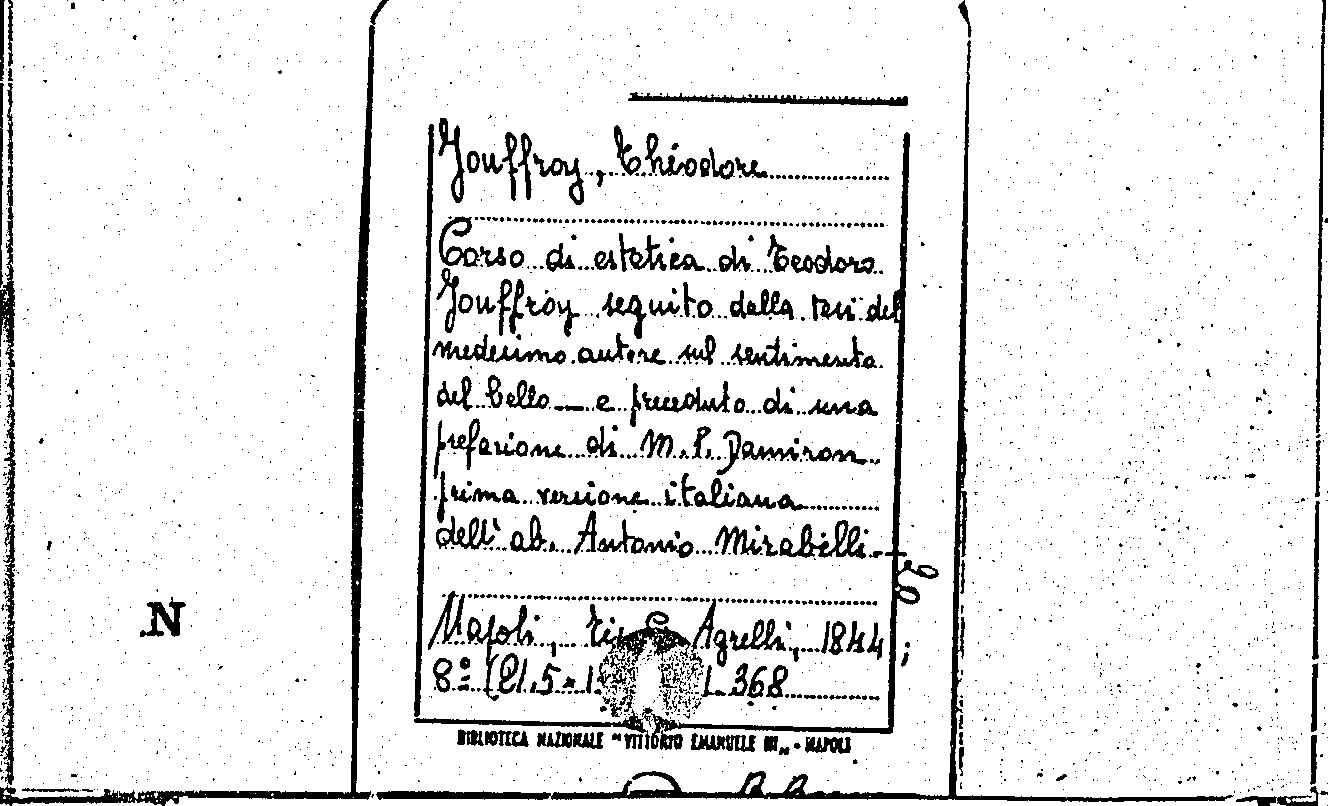 Jouffroy, Théodore
Corso di estetica di Teodoro
Jouffroy seguito dalla tesi del
medesimo autore sul sentimento
del bello — e preceduto di una
prefazione di M. P. Damiron.
prima versione italiana
dell' ab. Antonio Mirabelli.—
Napoli, Agrelli, 1844;
8º (21.5 × 368
BIBLIOTECA NAZIONALE "VITTORIO EMANUELE III" - NAPOLI
N